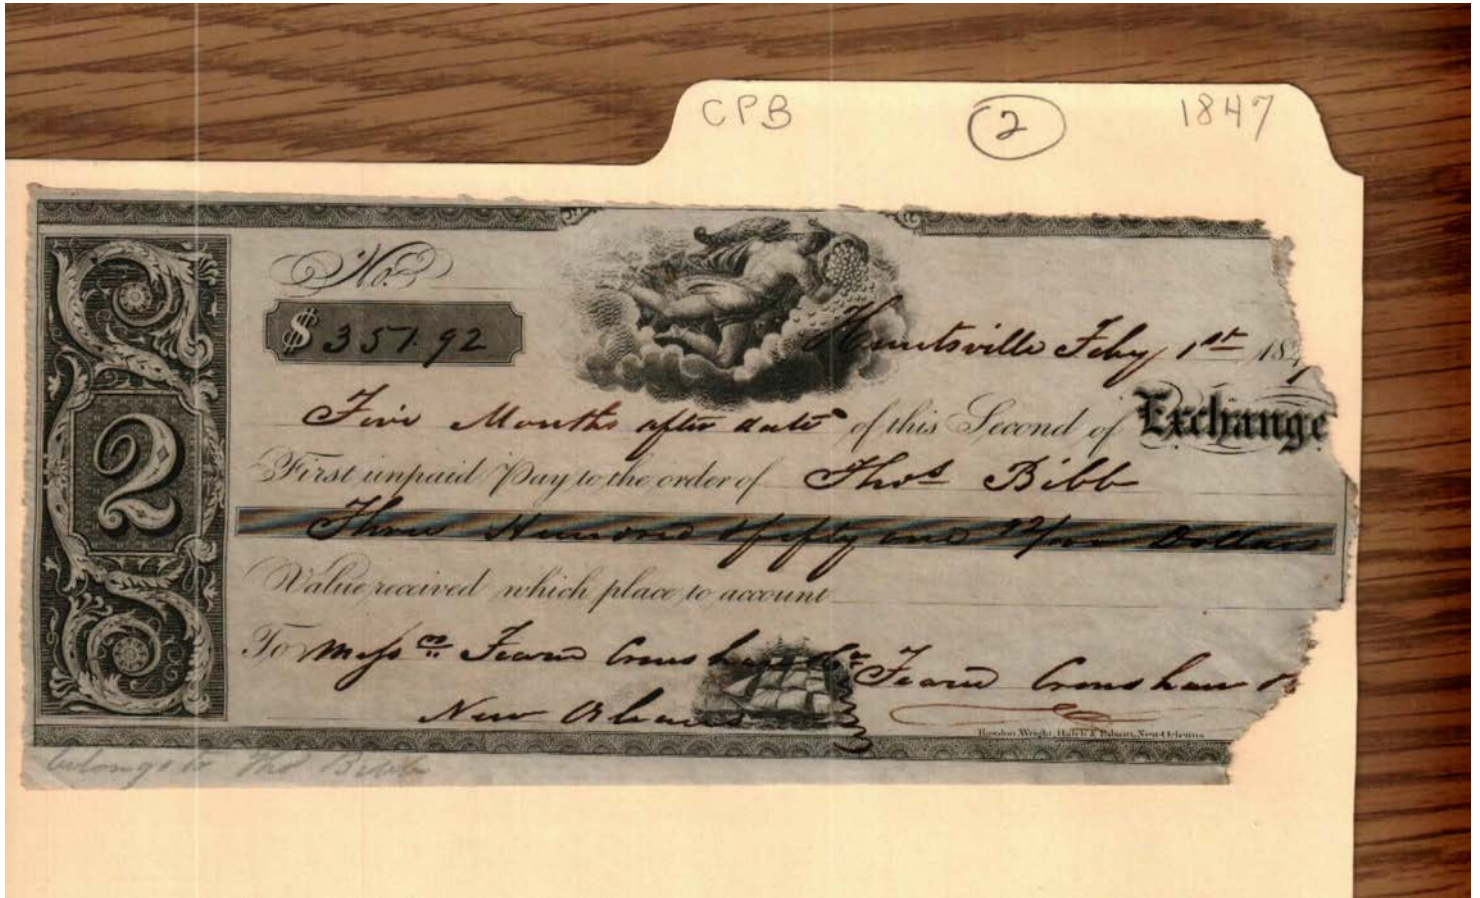 CPB 2 1847
No.
$ 351.92
Huntsville Feby 1st 184
Five Months after date of this Second of Exchange
First unpaid Pay to the order of Thos Bibb
Three Hundred & fifty one 92/100 Dollars
Value received which place to account
To Messrs Fearn Crenshaw & Co Fearn Crenshaw
New Orleans
Rawdon, Wright, Hatch & Edson, New-Orleans
2
belongs to Tho Bibb